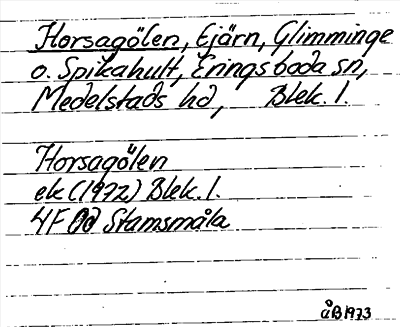 Horsagölen, Ejärn, Glimminge
o. Spikahult, Eringsboda sn,
Medelstads hd, Blek. l.
Horsagölen
ek (1972) Blek. l.
4F 0d Stamsmåla
ÅB 1973